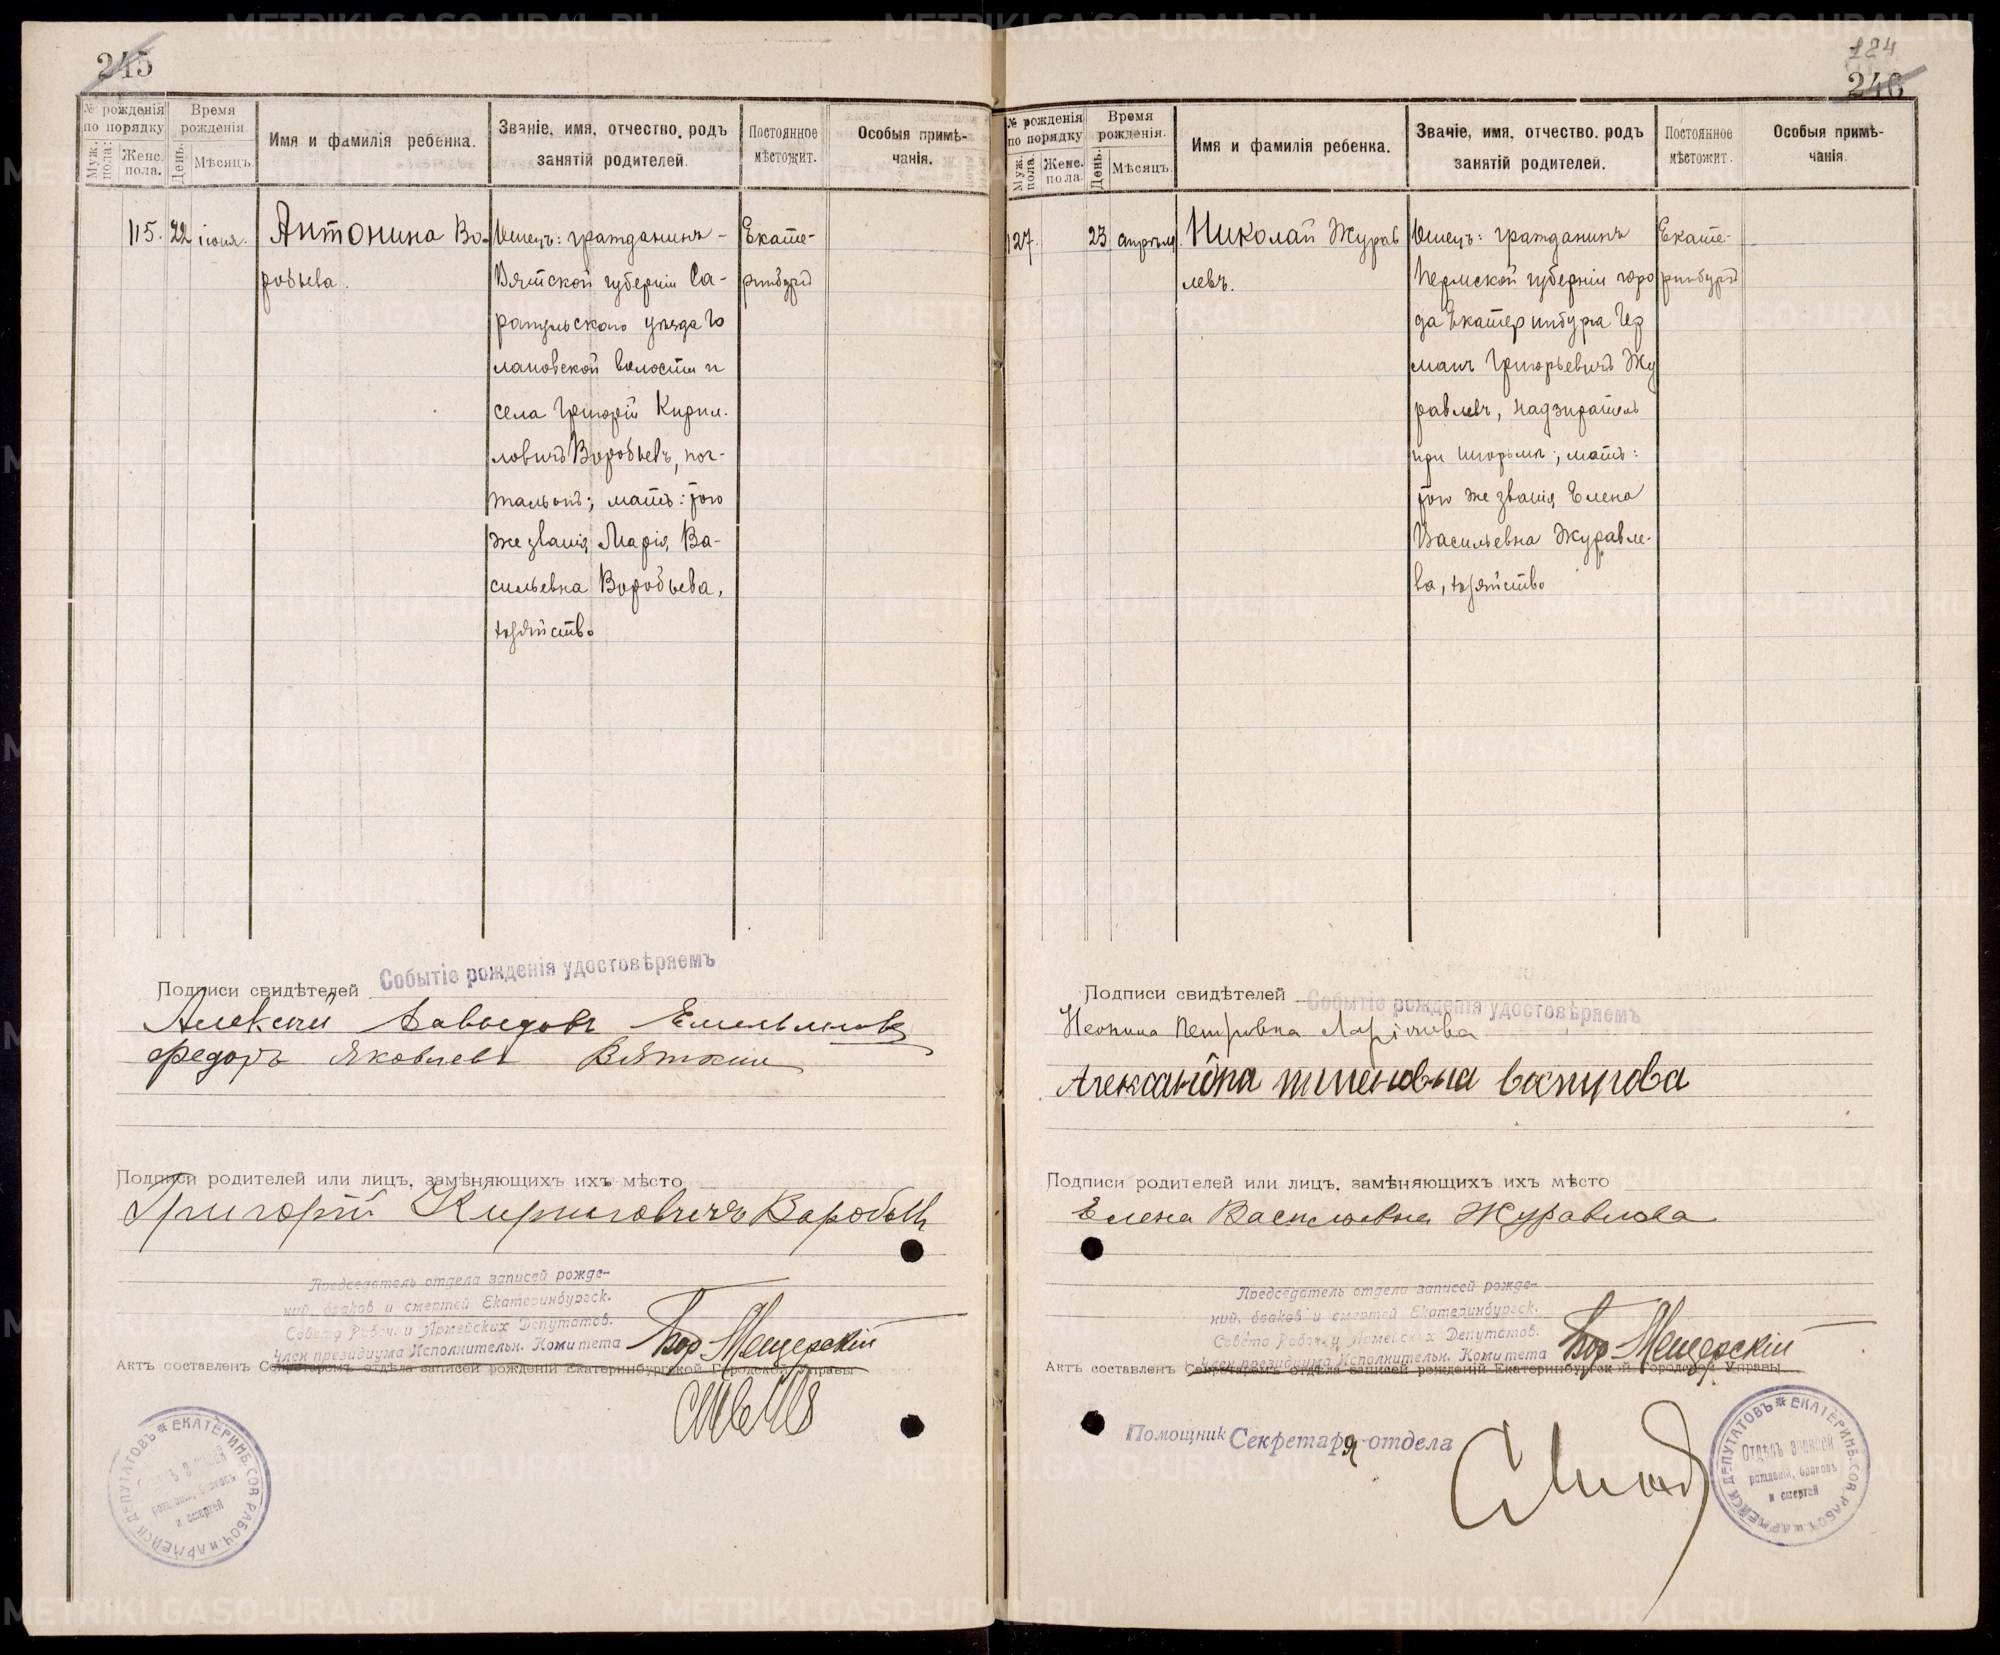 245
№ рожденія по порядку
Муж. пола.
Женс. пола.
Время рожденія
День.
Мѣсяцъ.
Имя и фамилія ребенка.
Званіе, имя, отчество, родъ занятій родителей.
Постоянное мѣстожит.
Особыя примѣчанія.
115.
22
іюня.
Антонина Во-
робьева.
Отецъ: гражданинъ -
Вятской губерніи Са-
рапульскаго уѣзда Го
лановской волости и
села Григорій Кирил-
ловичъ Воробьевъ, поч-
тальонъ; мать: того
же званія, Марія Ва-
сильевна Воробьева,
хозяйство
Екате-
ринбургъ
Событіе рожденія удостовѣряемъ
Подписи свидѣтелей
Алексѣй Давыдовъ Емельяновъ
Федоръ Яковлевъ Вяткин
Подписи родителей или лицъ, замѣняющихъ ихъ мѣсто
Григорій Кириловичъ Воробьевъ
Председатель отдела записей рожде-
ний, браков и смертей Екатеринбургск.
Совета Рабоч. и Армейских Депутатов.
Член президиума Исполнительн. Комитета
Бор. Мещерскій
Актъ составленъ Секретаремъ отдѣла записей рожденій Екатеринбургской Городской Управы
ЕКАТЕРИНБ. СОВ. РАБОЧ. и АРМЕЙСК. ДЕПУТАТОВЪ
рожденій, браковъ
и смертей
184
246
№ рожденія по порядку
Муж. пола.
Женс. пола.
Время рожденія.
День.
Мѣсяцъ.
Имя и фамилія ребенка.
Званіе, имя, отчество, родъ занятій родителей.
Постоянное мѣстожит.
Особыя примѣчанія.
127.
23
апрѣля
Николай Журав
левъ.
Отецъ: гражданинъ
Пермской губерніи горо
да Екатеринбурга Гер
манъ Григорьевичъ Жу
равлевъ, надзиратель
при тюрьмѣ; мать:
того же званія, Елена
Васильевна Журавле-
ва, хозяйство
Екате-
ринбургъ
Подписи свидѣтелей
Событіе рожденія удостовѣряемъ
Петровна Ларіонова
Александра пименовна
Подписи родителей или лицъ, замѣняющихъ ихъ мѣсто
Елена Васильевна Журавлева
Председатель отдела записей рожде-
ний, браков и смертей Екатеринбургск.
Совета Рабоч. и Армейских Депутатов.
Член президиума Исполнительн. Комитета
Бор. Мещерскій
Актъ составленъ Секретаремъ отдѣла записей рожденій Екатеринбургской Городской Управы
Помощник Секретаря отдела
ЕКАТЕРИНБ. СОВ. РАБОЧ. и АРМЕЙСК. ДЕПУТАТОВЪ
Отдѣлъ записей
рожденій, браковъ
и смертей
METRIKI.GASO-URAL.RU